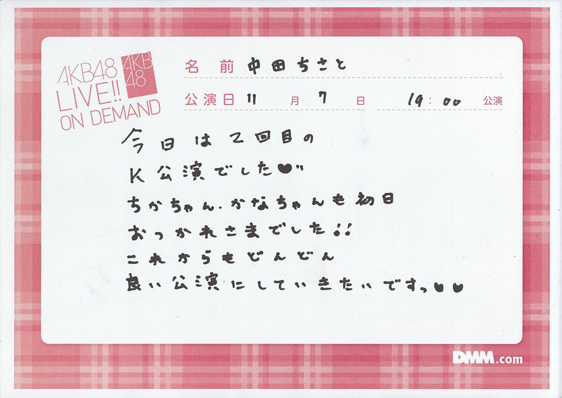 AKB48
LIVE!!
ON DEMAND
AKB
48
名前 中田ちさと
公演日 11 月 7 日 19:00 公演
今日は2回目の
K公演でした♥"
ちかちゃん、かなちゃんも初日
おつかれさまでした!!
これからもどんどん
良い公演にしていきたいですっ♥♥
DMM.com